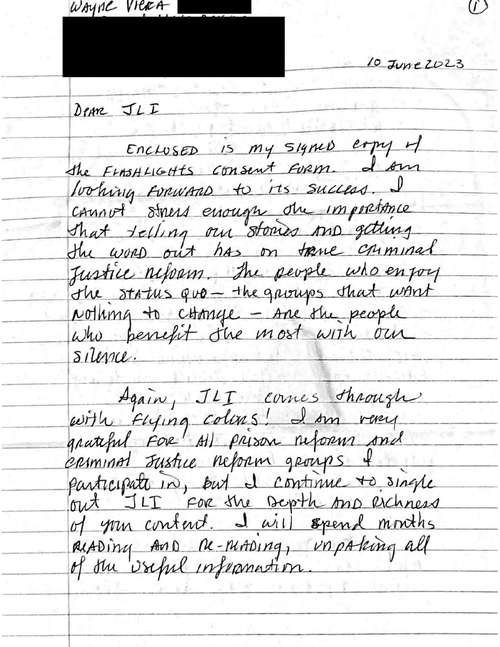 WAYNE VIERA
1
10 June 2023
Dear JLI
Enclosed is my signed copy of
the FLASHLIGHTS consent form. I am
looking forward to its success. I
cannot stress enough the importance
that telling our stories and getting
the word out has on true criminal
justice reform. The people who enjoy
the status quo — the groups that want
nothing to change — are the people
who benefit the most with our
silence.
Again, JLI comes through
with flying colors! I am very
grateful for all prison reform and
criminal justice reform groups I
participate in, but I continue to single
out JLI for the depth and richness
of your content. I will spend months
reading and re-reading, unpaking all
of the useful information.